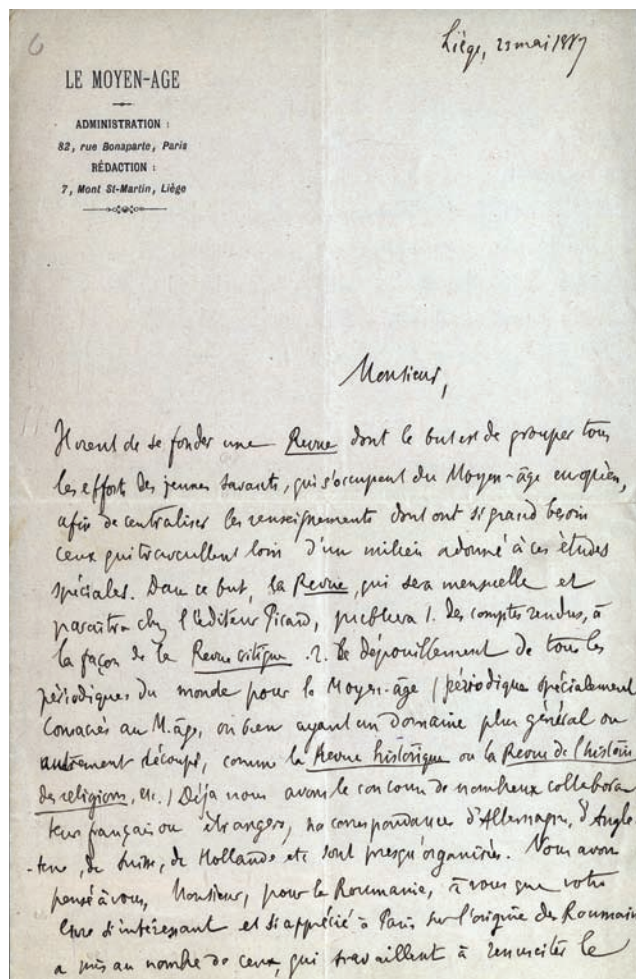 6
Liège, 23 mai 1887
LE MOYEN-AGE
ADMINISTRATION :
82, rue Bonaparte, Paris
RÉDACTION :
7, Mont St-Martin, Liège
Monsieur,
Il vient de se fonder une Revue dont le but est de grouper tous
les efforts des jeunes savants, qui s'occupent du Moyen-âge européen,
afin de centraliser les renseignements dont ont si grand besoin
ceux qui travaillent loin d'un milieu adonné à ces études
spéciales. Dans ce but, la Revue, qui sera mensuelle et
paraîtra chez l'éditeur Picard, publiera 1. Des comptes rendus, à
la façon de la Revue critique. 2. le dépouillement de tous les
périodiques du monde pour le Moyen-âge (périodiques spécialement
consacrés au M.âge, ou bien ayant un domaine plus général ou
autrement découpé, comme la Revue historique ou la Revue de l'histoire
des religions, etc.) Déjà nous avons le concours de nombreux collabora
teurs français ou étrangers, nos correspondances d'Allemagne, d'Angle
-terre, de Suisse, de Hollande etc sont presqu'organisées. Nous avons
pensé à vous, Monsieur, pour la Roumanie, à vous que votre
livre si intéressant et si apprécié à Paris sur l'origine des Roumains
a mis au nombre de ceux, qui travaillent à ressusciter le